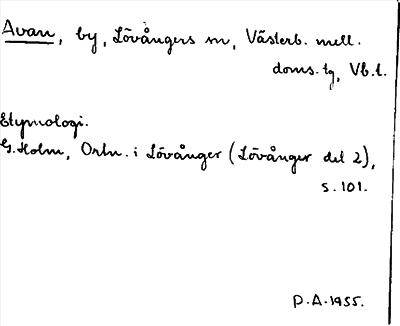 Avan, by, Lövångers sn, Västerb. mell.
doms. tg, Vb. l.
Etymologi.
G. Holm, Ortn. i Lövånger (Lövånger del 2),
s. 101.
P.A. 1955.